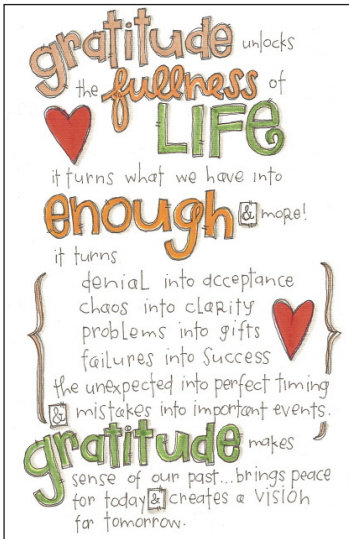 gratitude unlocks
the fullness of
LIFE
it turns what we have into
enough & more!
it turns
denial into acceptance
chaos into clarity
problems into gifts
failures into success
the unexpected into perfect timing
& mistakes into important events.
gratitude makes
sense of our past...brings peace
for today & creates a vision
for tomorrow.